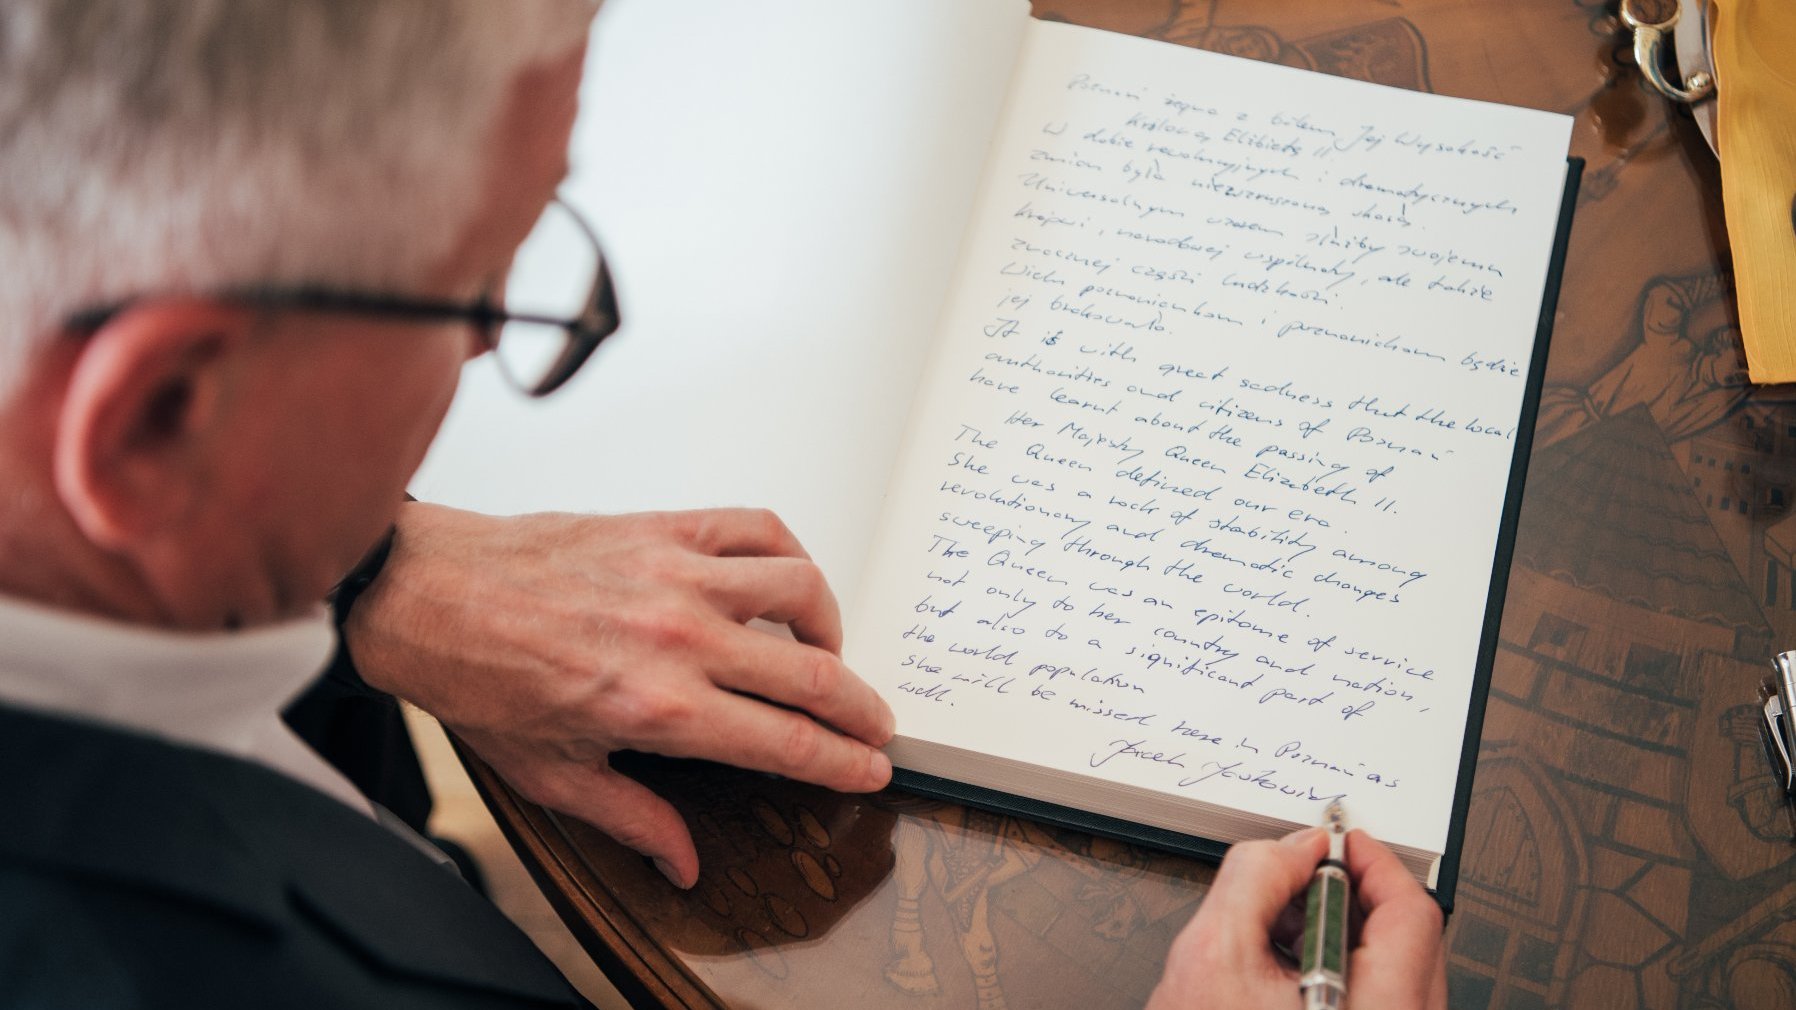 Poznań żegna z bólem Jej Wysokość
Królową Elżbietę II.
W dobie rewolucyjnych i dramatycznych
zmian była niewzruszoną skałą.
Uniwersalnym wzorem służby swojemu
krajowi, narodowej wspólnoty, ale także
znacznej części ludzkości.
Wielu poznaniankom i poznaniakom będzie
jej brakowało.
It is with great sadness that the local
authorities and citizens of Poznań
have learnt about the passing of
Her Majesty Queen Elizabeth II.
The Queen defined our era.
She was a rock of stability among
revolutionary and dramatic changes
sweeping through the world.
The Queen was an epitome of service
not only to her country and nation,
but also to a significant part of
the world population
She will be missed here in Poznań as
well.
Jacek Jaśkowiak